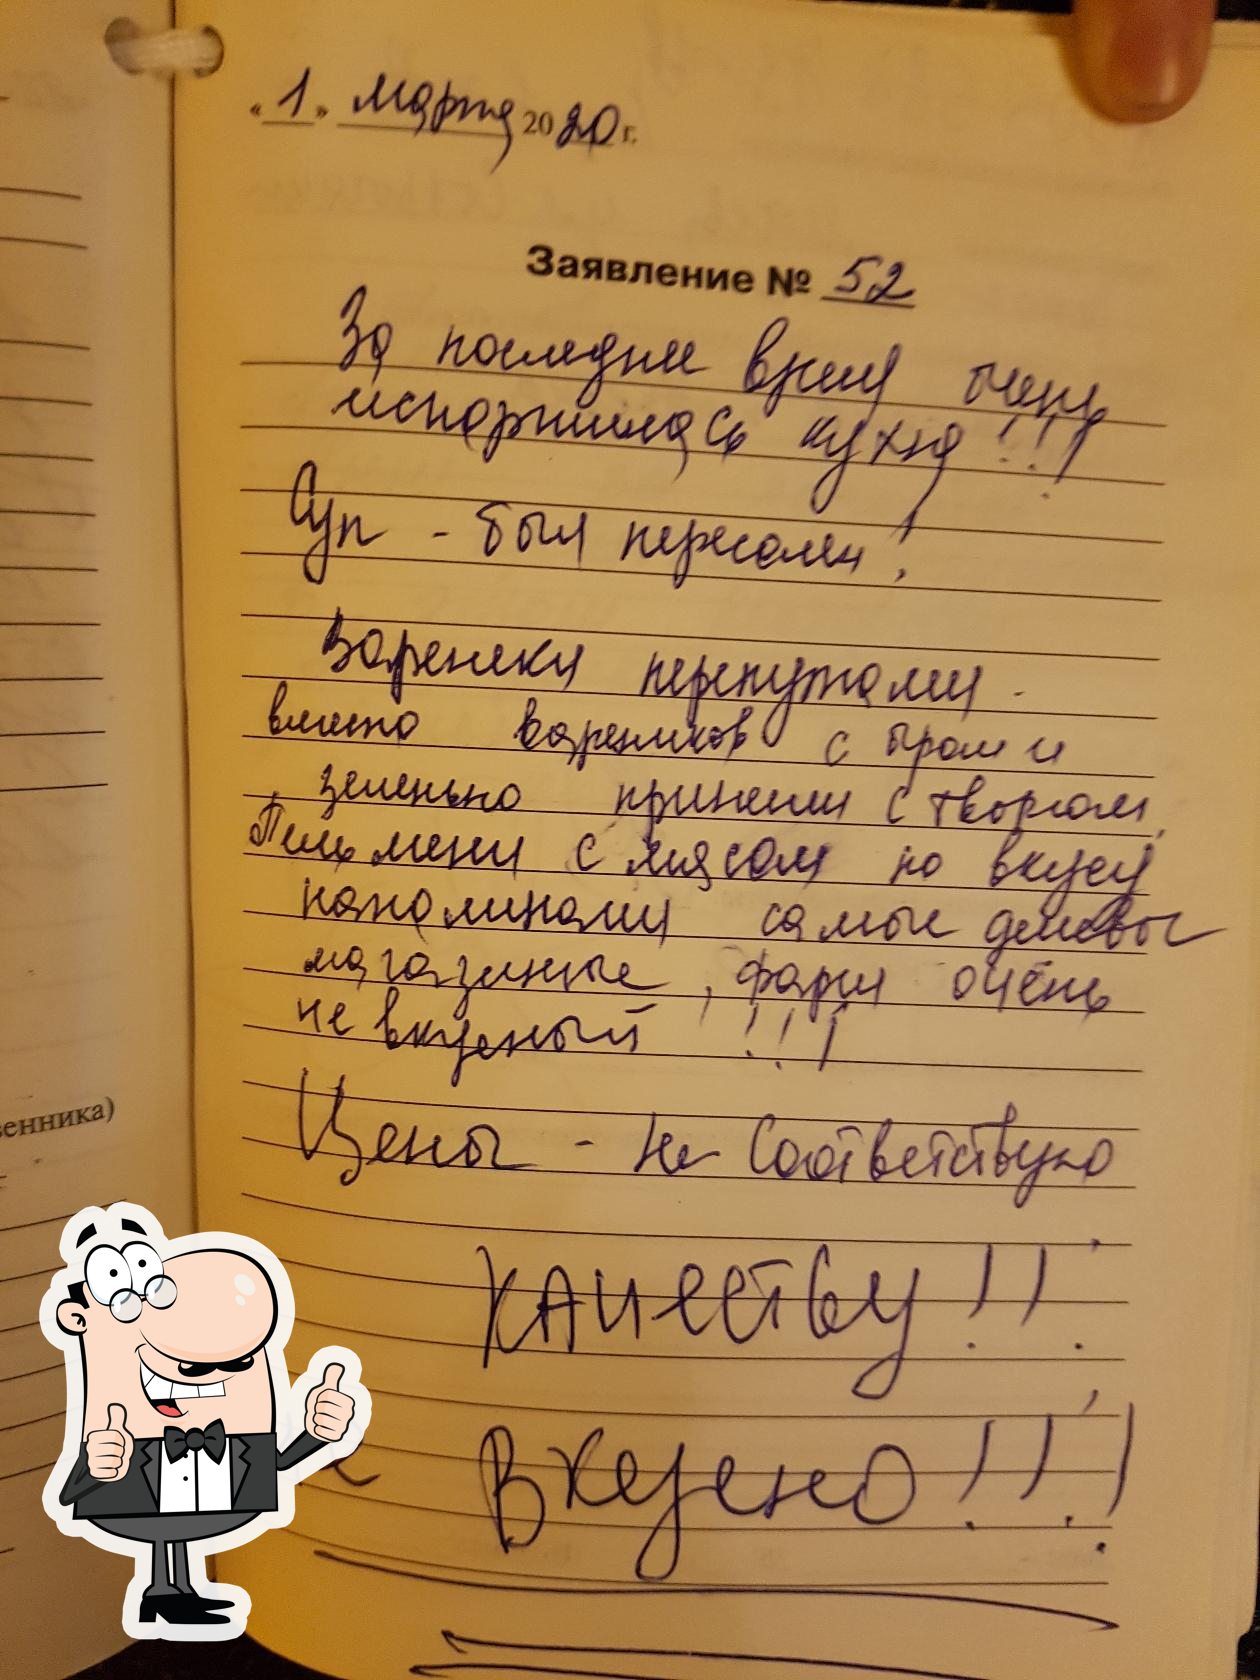 « 1 » марта 2020 г.
Заявление № 52
За последнее время очень
испортилась кухня!!!
Суп - был пересолен!
Вареники перепутали.
вместо вареников с сыром и
зеленью принесли с творогом,
Пельмени с мясом по вкусу
напоминали самые дешевые
магазинные, фарш очень
не вкусный!!!
Цены - не соответствую
качеству!!!
Не вкусно!!!
венника)